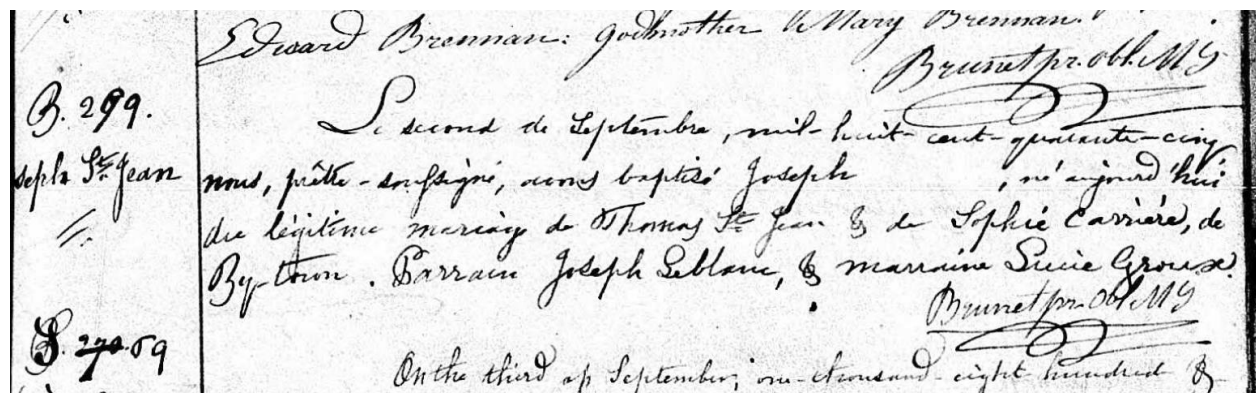 Edward Brennan: godmother Mary Brennan.
Brunet pr. obl. M I
B. 299.
Le second de Septembre, mil-huit-cent-quarante-cinq
seph St. Jean
nous, prêtre-soussigné, avons baptisé Joseph , né aujourd'hui
du légitime mariage de Thomas St Jean & de Sophie Carrière, de
By-town. Parrain Joseph Leblanc, & marraine Lucie Groux.
Brunet pr. Obl. M I
S. 69
On the third of September, one-thousand-eight hundred &